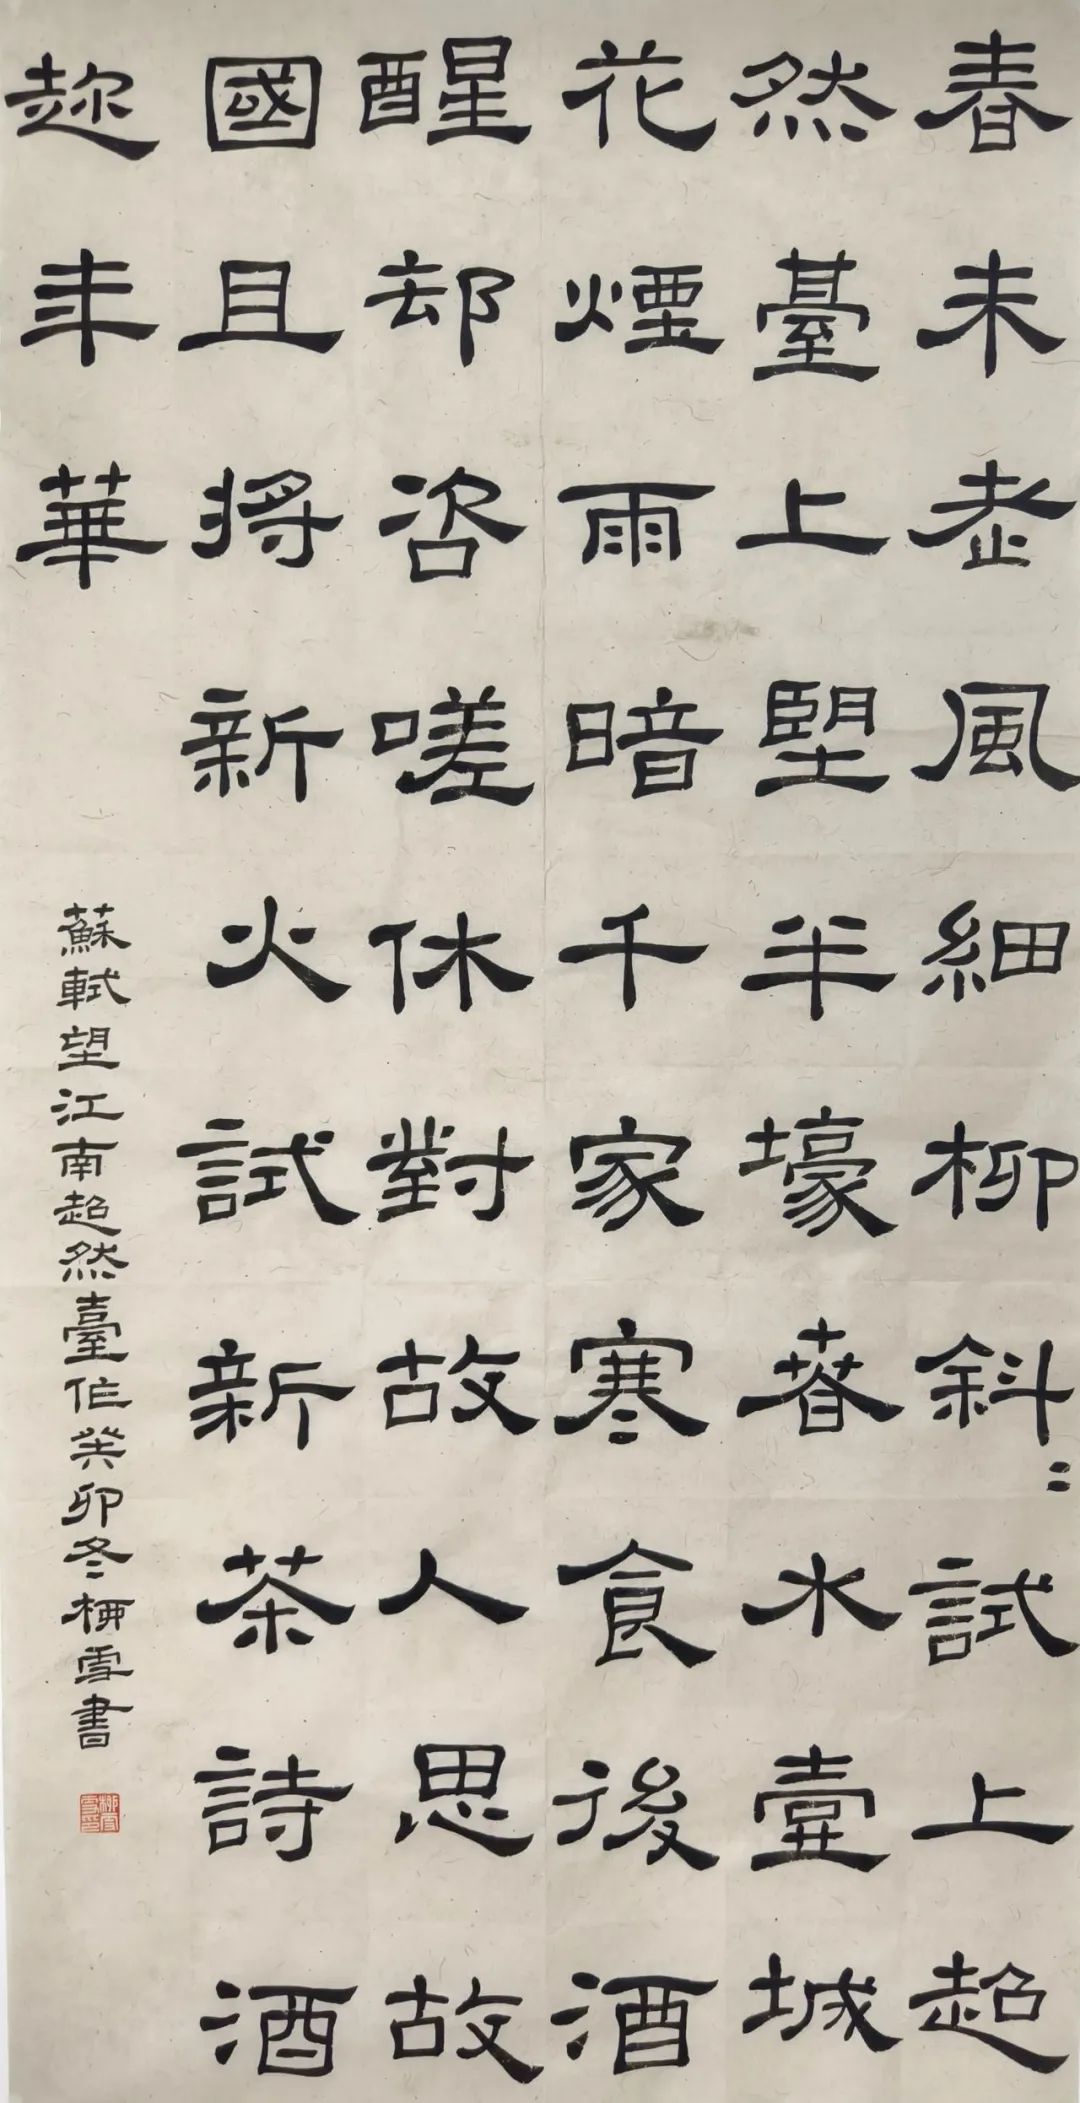 春未老風細柳斜〻試上超
然臺上朢半壕春水壹城
花煙雨暗千家寒食後酒
醒却咨嗟休對故人思故
國且將新火試新茶詩酒
趂年華
蘇軾望江南超然臺作癸卯冬雪書